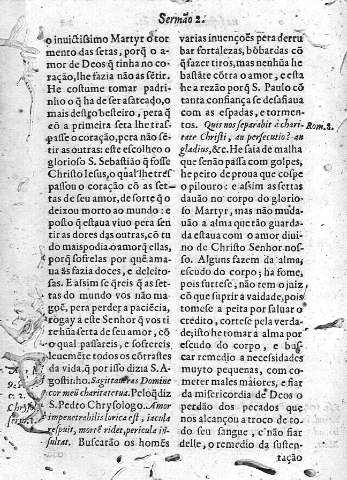 Sermão 2.
o invictissimo Martyr o tor-
mento das setas, porq̃ o a-
mor de Deos q̃ tinha no co-
ração, lhe fazia não as sẽtir.
He costume tomar padri-
nho o q̃ ha de ser asetẽado, o
mais destro besteiro, pera q̃
cõ a primeira seta lhe tras-
passe o coração, pera não sẽ-
tir as outras: este escolheo o
glorioso S. Sebastião q̃ fosse
Christo Iesus, o qual lhe tres
passou o coração cõ as set-
tas de seu amor, de sorte q̃ o
deixou morto ao mundo: e
posto q̃ estaua viuo pera sen
tir as dores das outras, cõ tu
do mais podia o amor q̃ ellas,
porq̃ sofrelas por quẽ ama-
ua ás fazia doces, e deleito-
sas. E assim se q̃reis q̃ as set-
tas do mundo vos não ma-
goẽ, pera perder a paciẽcia,
rogay a este Senhor q̃ vos ti
re hũa seta de seu amor, cõ
o qual passareis, e sofrereis
leuemẽte todos os cõtrastes
da vida, q̃ por isso dizia S. A-
gostinho. Sagittaueras Domine
cor meũ charitate tua. Pelo q̃ diz
S. Pedro Chrysologo. Amor
impenetrabilis lorica est, iacula
respuit, mortẽ ridet, pericula in-
sultat. Buscarão os homẽs
varias inuençoẽs pera derru
bar fortalezas, bõbardas cõ
q̃ fazer tiros, mas nenhũa he
bastãte cõtra o amor, e esta
he a rezão porq̃ S. Paulo cõ
tanta confiança se desafiaua
com as espadas, e tormen-
tos. Quis nos separabit à chari-
tate Christi, an persecutio? an
gladius, &c. He saia de malha
que se não passa com golpes,
he peito de proua que cospe
o pilouro: e assim as settas
dauão no corpo do glorio-
so Martyr, mas não muda-
uão a alma que tão guarda-
da estaua com o amor diui-
no de Christo Senhor nos-
so. Alguns fazem da alma,
escudo do corpo; ha fome,
pois furtẽ, não tem o juiz,
cõ que suprir a vaidade, pois
tome se a peita por saluar o
crédito, cortese pela verda-
de; isto he tomar a alma por
escudo do corpo, e bus-
car remedio a necessidades
muyto pequenas, com co-
meter males maiores, e fiar
da misericordia de Deos o
perdão dos pecados que
nos alcançou a troco de to-
do seu sangue, e não fiar
delle, o remedio da susten-
tação
Rom. 8.